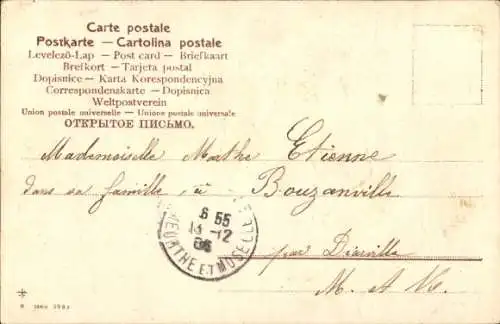 Carte postale
Postkarte — Cartolina postale
Levelező-Lap — Post card — Briefkaart
Brefkort — Tarjeta postal
Dopisnice — Karta Korespondencyjna
Correspondenzkarte — Dopisnica
Weltpostverein
Union postale universelle — Unione postale universale
ОТКРЫТОЕ ПИСЬМО.
Mademoiselle Marthe Etienne
dans sa famille à Bouzanville
par Diarville
M. et M.
6 55
13 - 12
MEURTHE ET MOSELLE